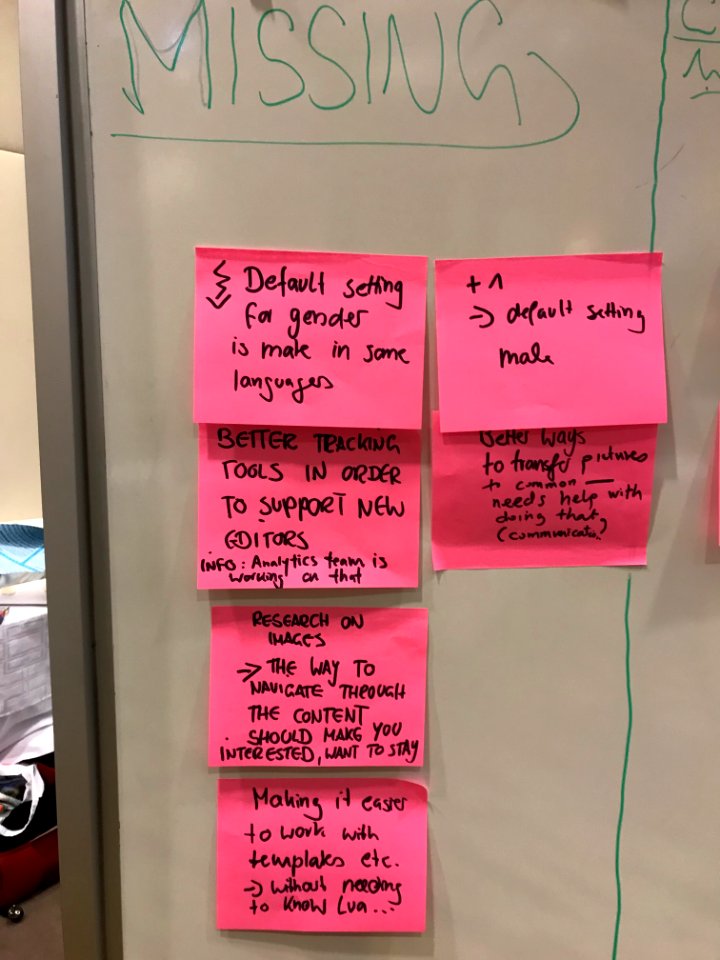 MISSING
Default setting
for gender
is male in some
languages
+1
→ default setting
male
BETTER TRACKING
TOOLS IN ORDER
TO SUPPORT NEW
EDITORS
INFO: Analytics team is
working on that
Better ways
to transfer pictures
to common —
needs help with
doing that,
RESEARCH ON
IMAGES
→ THE WAY TO
NAVIGATE THROUGH
THE CONTENT
SHOULD MAKE YOU
INTERESTED, WANT TO STAY
Making it easier
to work with
templates etc.
→ without needing
to know Lua...